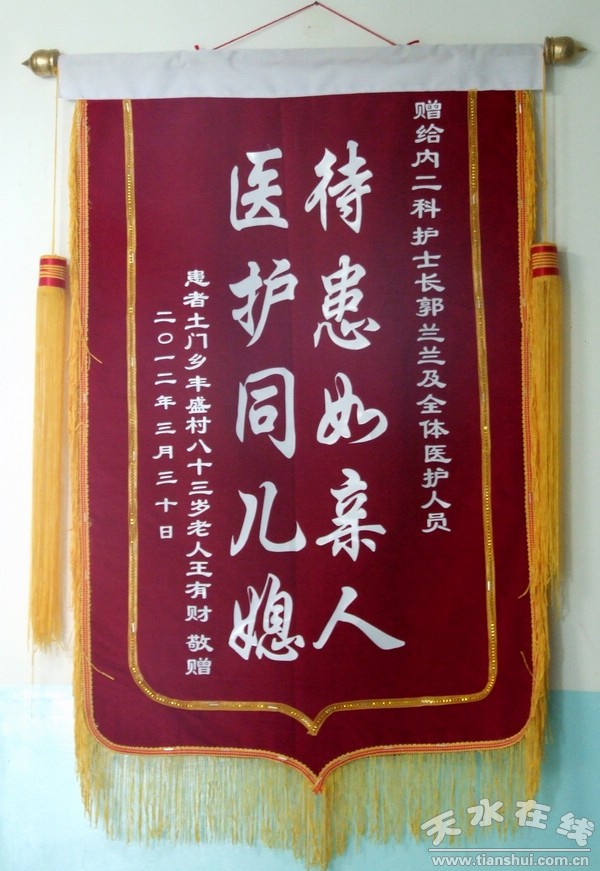 赠给内二科护士长郭兰兰及全体医护人员
待患如亲人
医护同儿媳
患者土门乡丰盛村八十三岁老人王有财 敬赠
二〇一二年三月三十日
天水在线
www.tianshui.com.cn